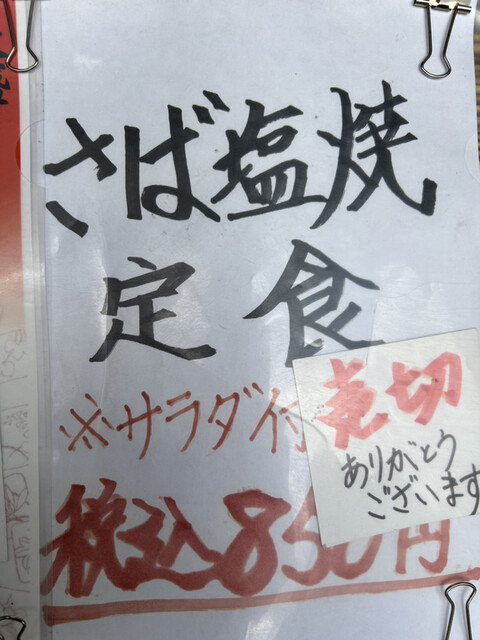 さば塩焼
定食
※サラダ付
売切
ありがとう
ございます
税込850円